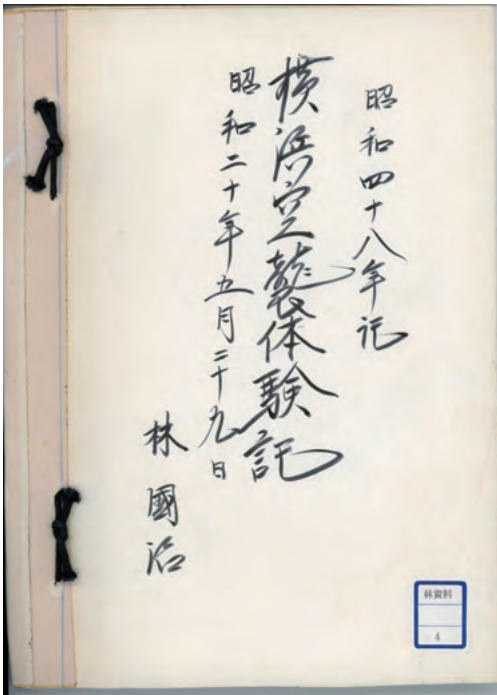 昭和四十八年記
横浜空襲体験記
昭和二十年五月二十九日
林國治
林資料
4